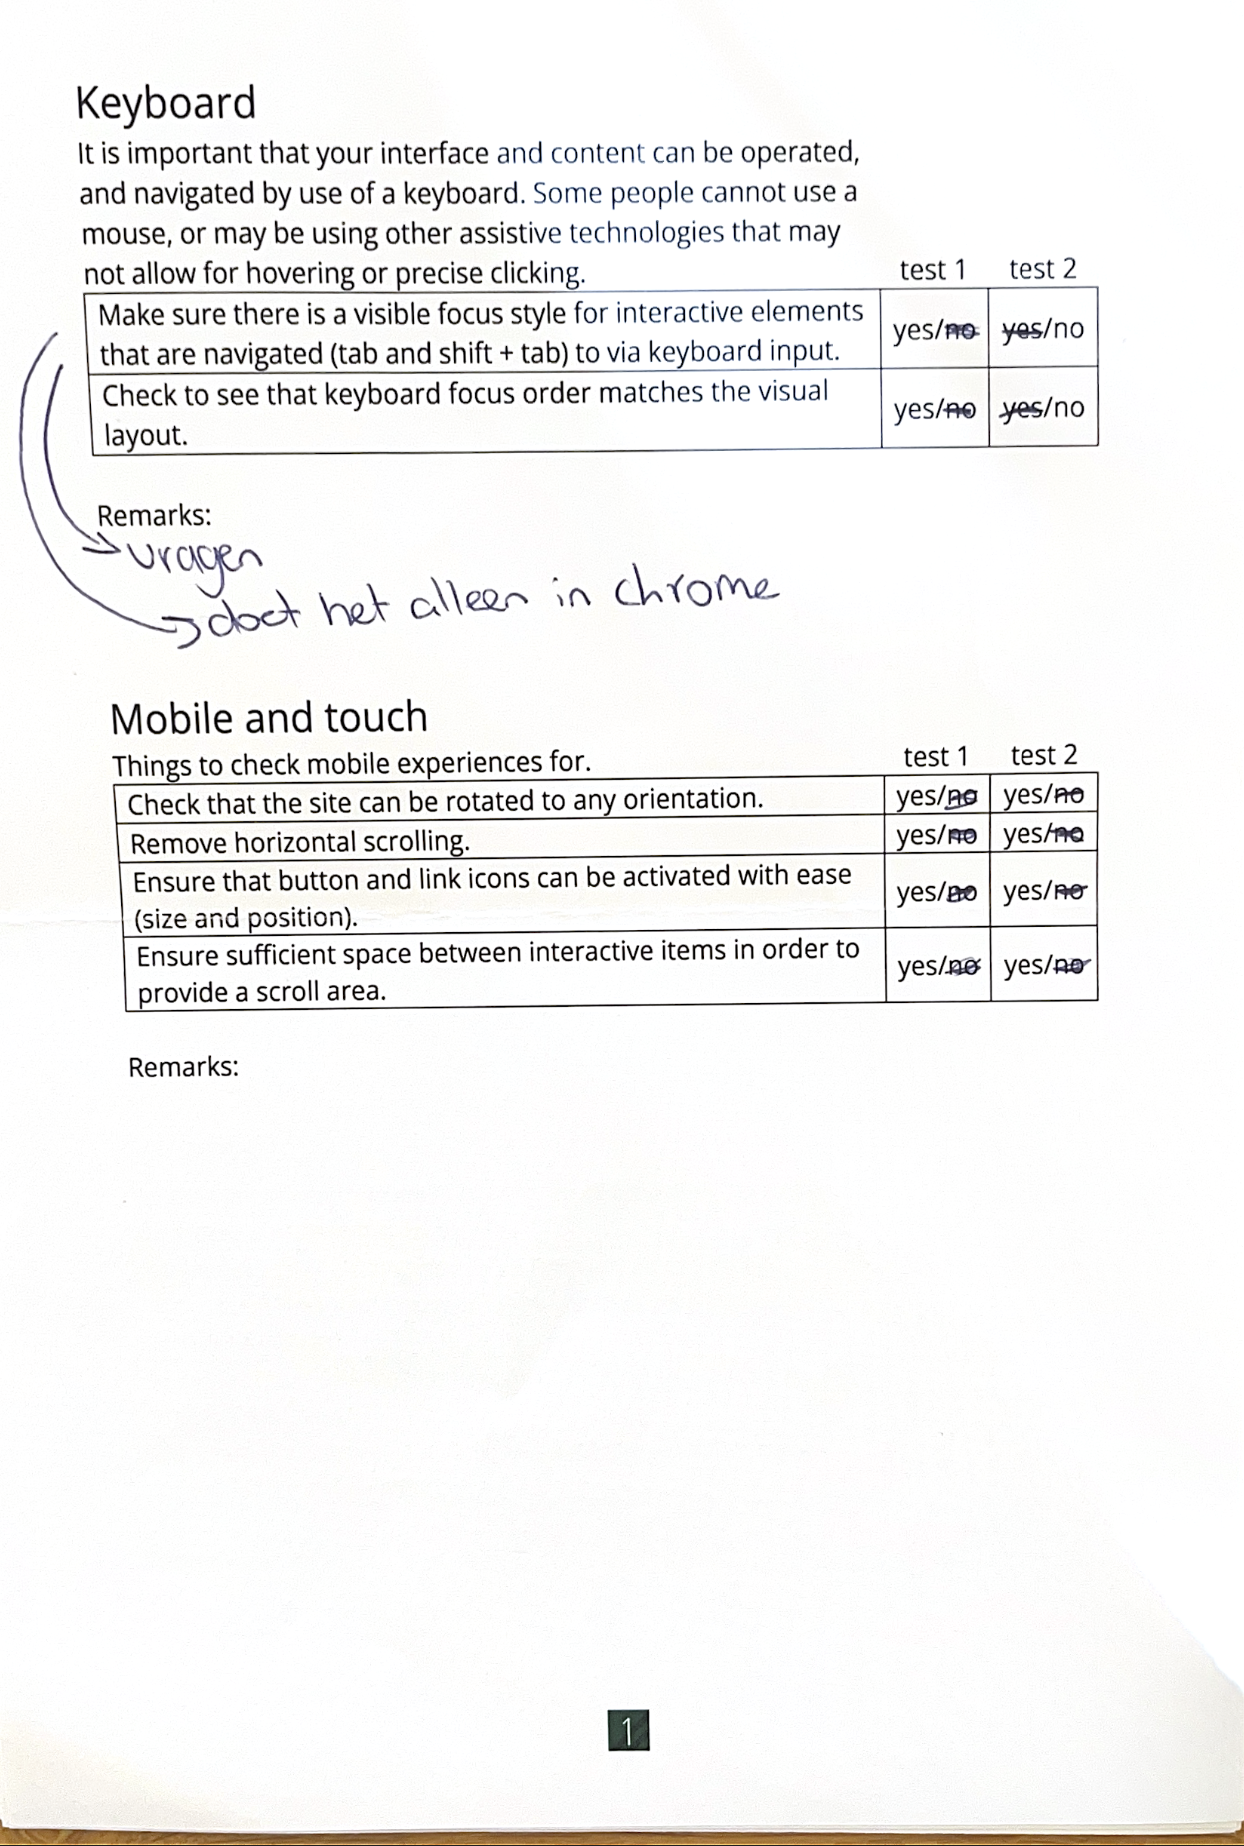 Keyboard
It is important that your interface and content can be operated,
and navigated by use of a keyboard. Some people cannot use a
mouse, or may be using other assistive technologies that may
not allow for hovering or precise clicking. test 1 test 2
Make sure there is a visible focus style for interactive elements
that are navigated (tab and shift + tab) to via keyboard input.
yes/no yes/no
Check to see that keyboard focus order matches the visual
layout.
yes/no yes/no
Remarks:
vragen
doet het alleen in chrome
Mobile and touch
Things to check mobile experiences for. test 1 test 2
Check that the site can be rotated to any orientation. yes/no yes/no
Remove horizontal scrolling. yes/no yes/no
Ensure that button and link icons can be activated with ease
(size and position).
yes/no yes/no
Ensure sufficient space between interactive items in order to
provide a scroll area.
yes/no yes/no
Remarks:
1